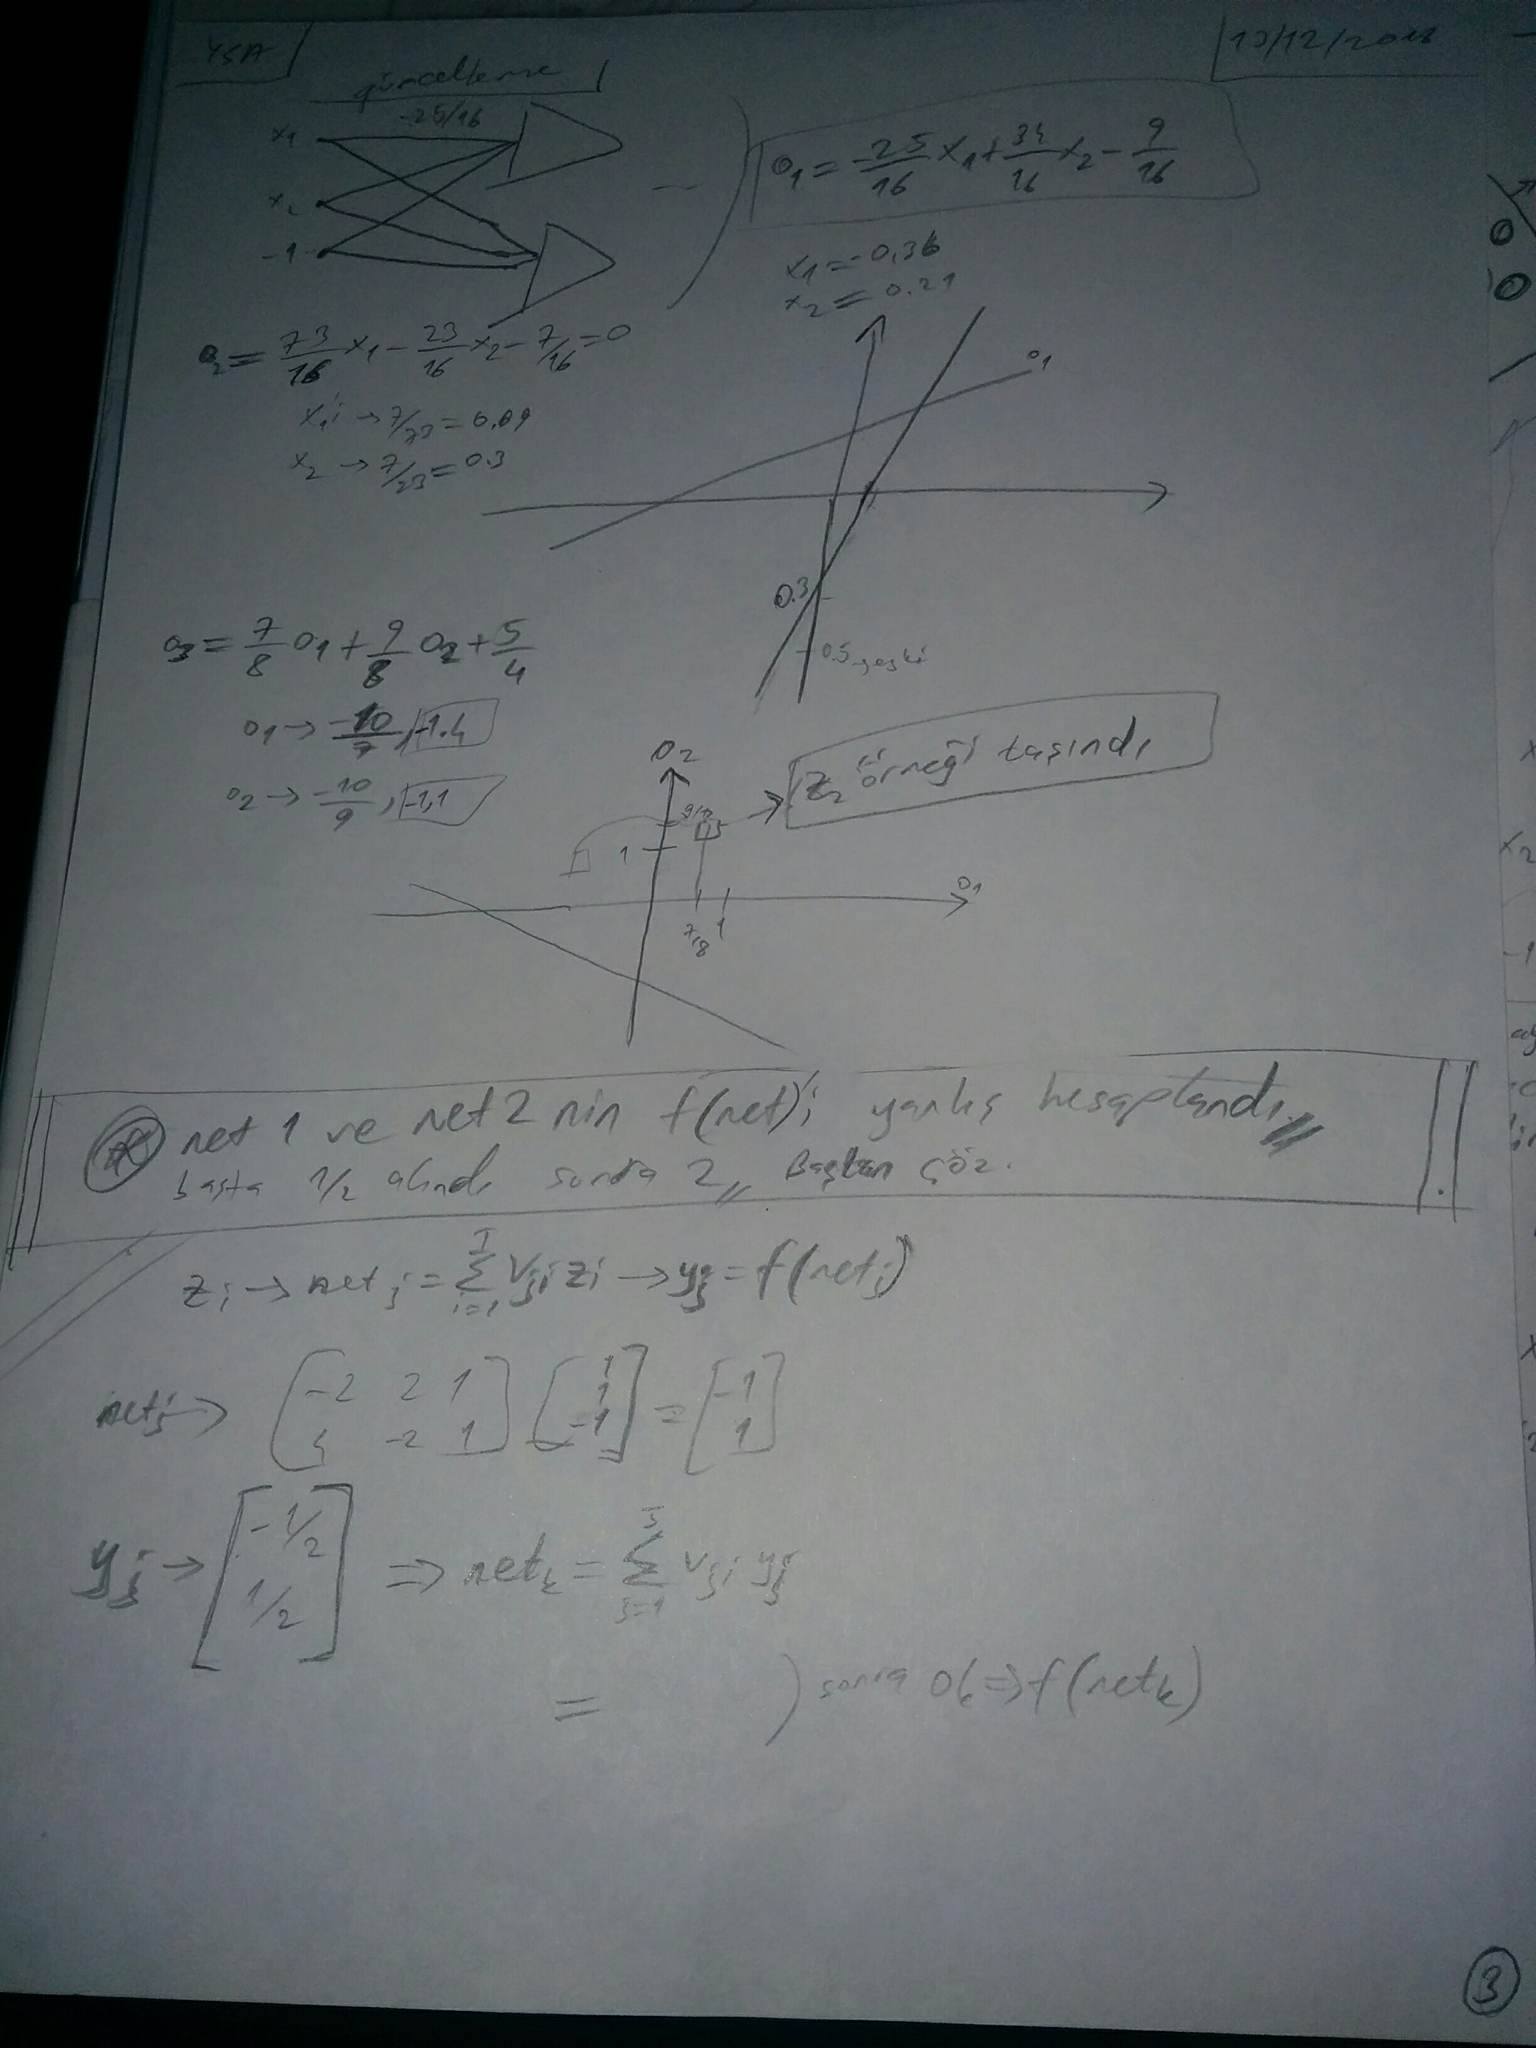 YSA
13/12/2018
güncelleme
-25/16
x₁
x₂
-1
o₁ = -25/16 x₁ + 34/16 x₂ - 9/16
x₁ = -0,36
x₂ = 0.27
o₂ = 73/16 x₁ - 23/16 x₂ - 7/16 = 0
x₁ → 7/73 = 0.09
x₂ → 7/23 = 0.3
o₁
0.3
0.5
o₃ = 7/8 o₁ + 9/8 o₂ + 5/4
o₁ → -10/7, -1.4
o₂ → -10/9, -1,1
o₂
z₂ örneği taşındı
1
o₁
7/8
1
net 1 ve net 2 nin f(net)'i yanlış hesaplandı
başta 1/2 alındı sonra 2,, Baştan çöz.
zᵢ → netⱼ = Σ i=1 I vⱼᵢ zᵢ → yⱼ = f(netⱼ)
netⱼ → [-2 2 1] [1 1 -1] = [-1 1]
-2 1
yⱼ → [-1/2 1/2] ⇒ netₖ = Σ j=1 J vⱼᵢ yⱼ
= ) sonra oₖ ⇒ f(netₖ)
3